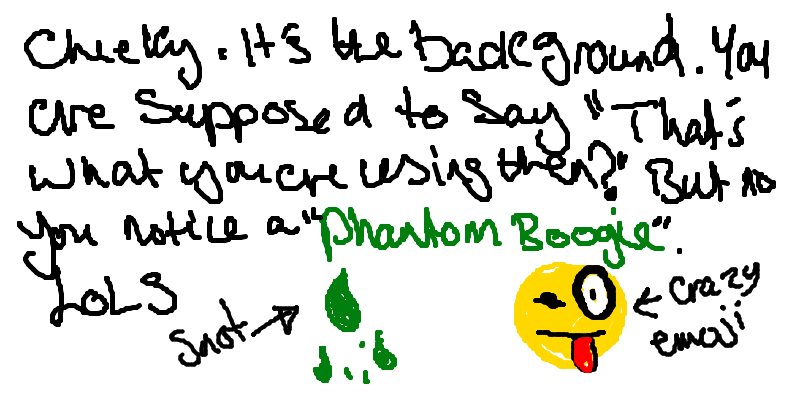 Cheeky. It's the background. You
are supposed to say "That's
what you're using then?" But no
you notice a "Phantom Boogie".
LOLS
Snot
crazy
emoji